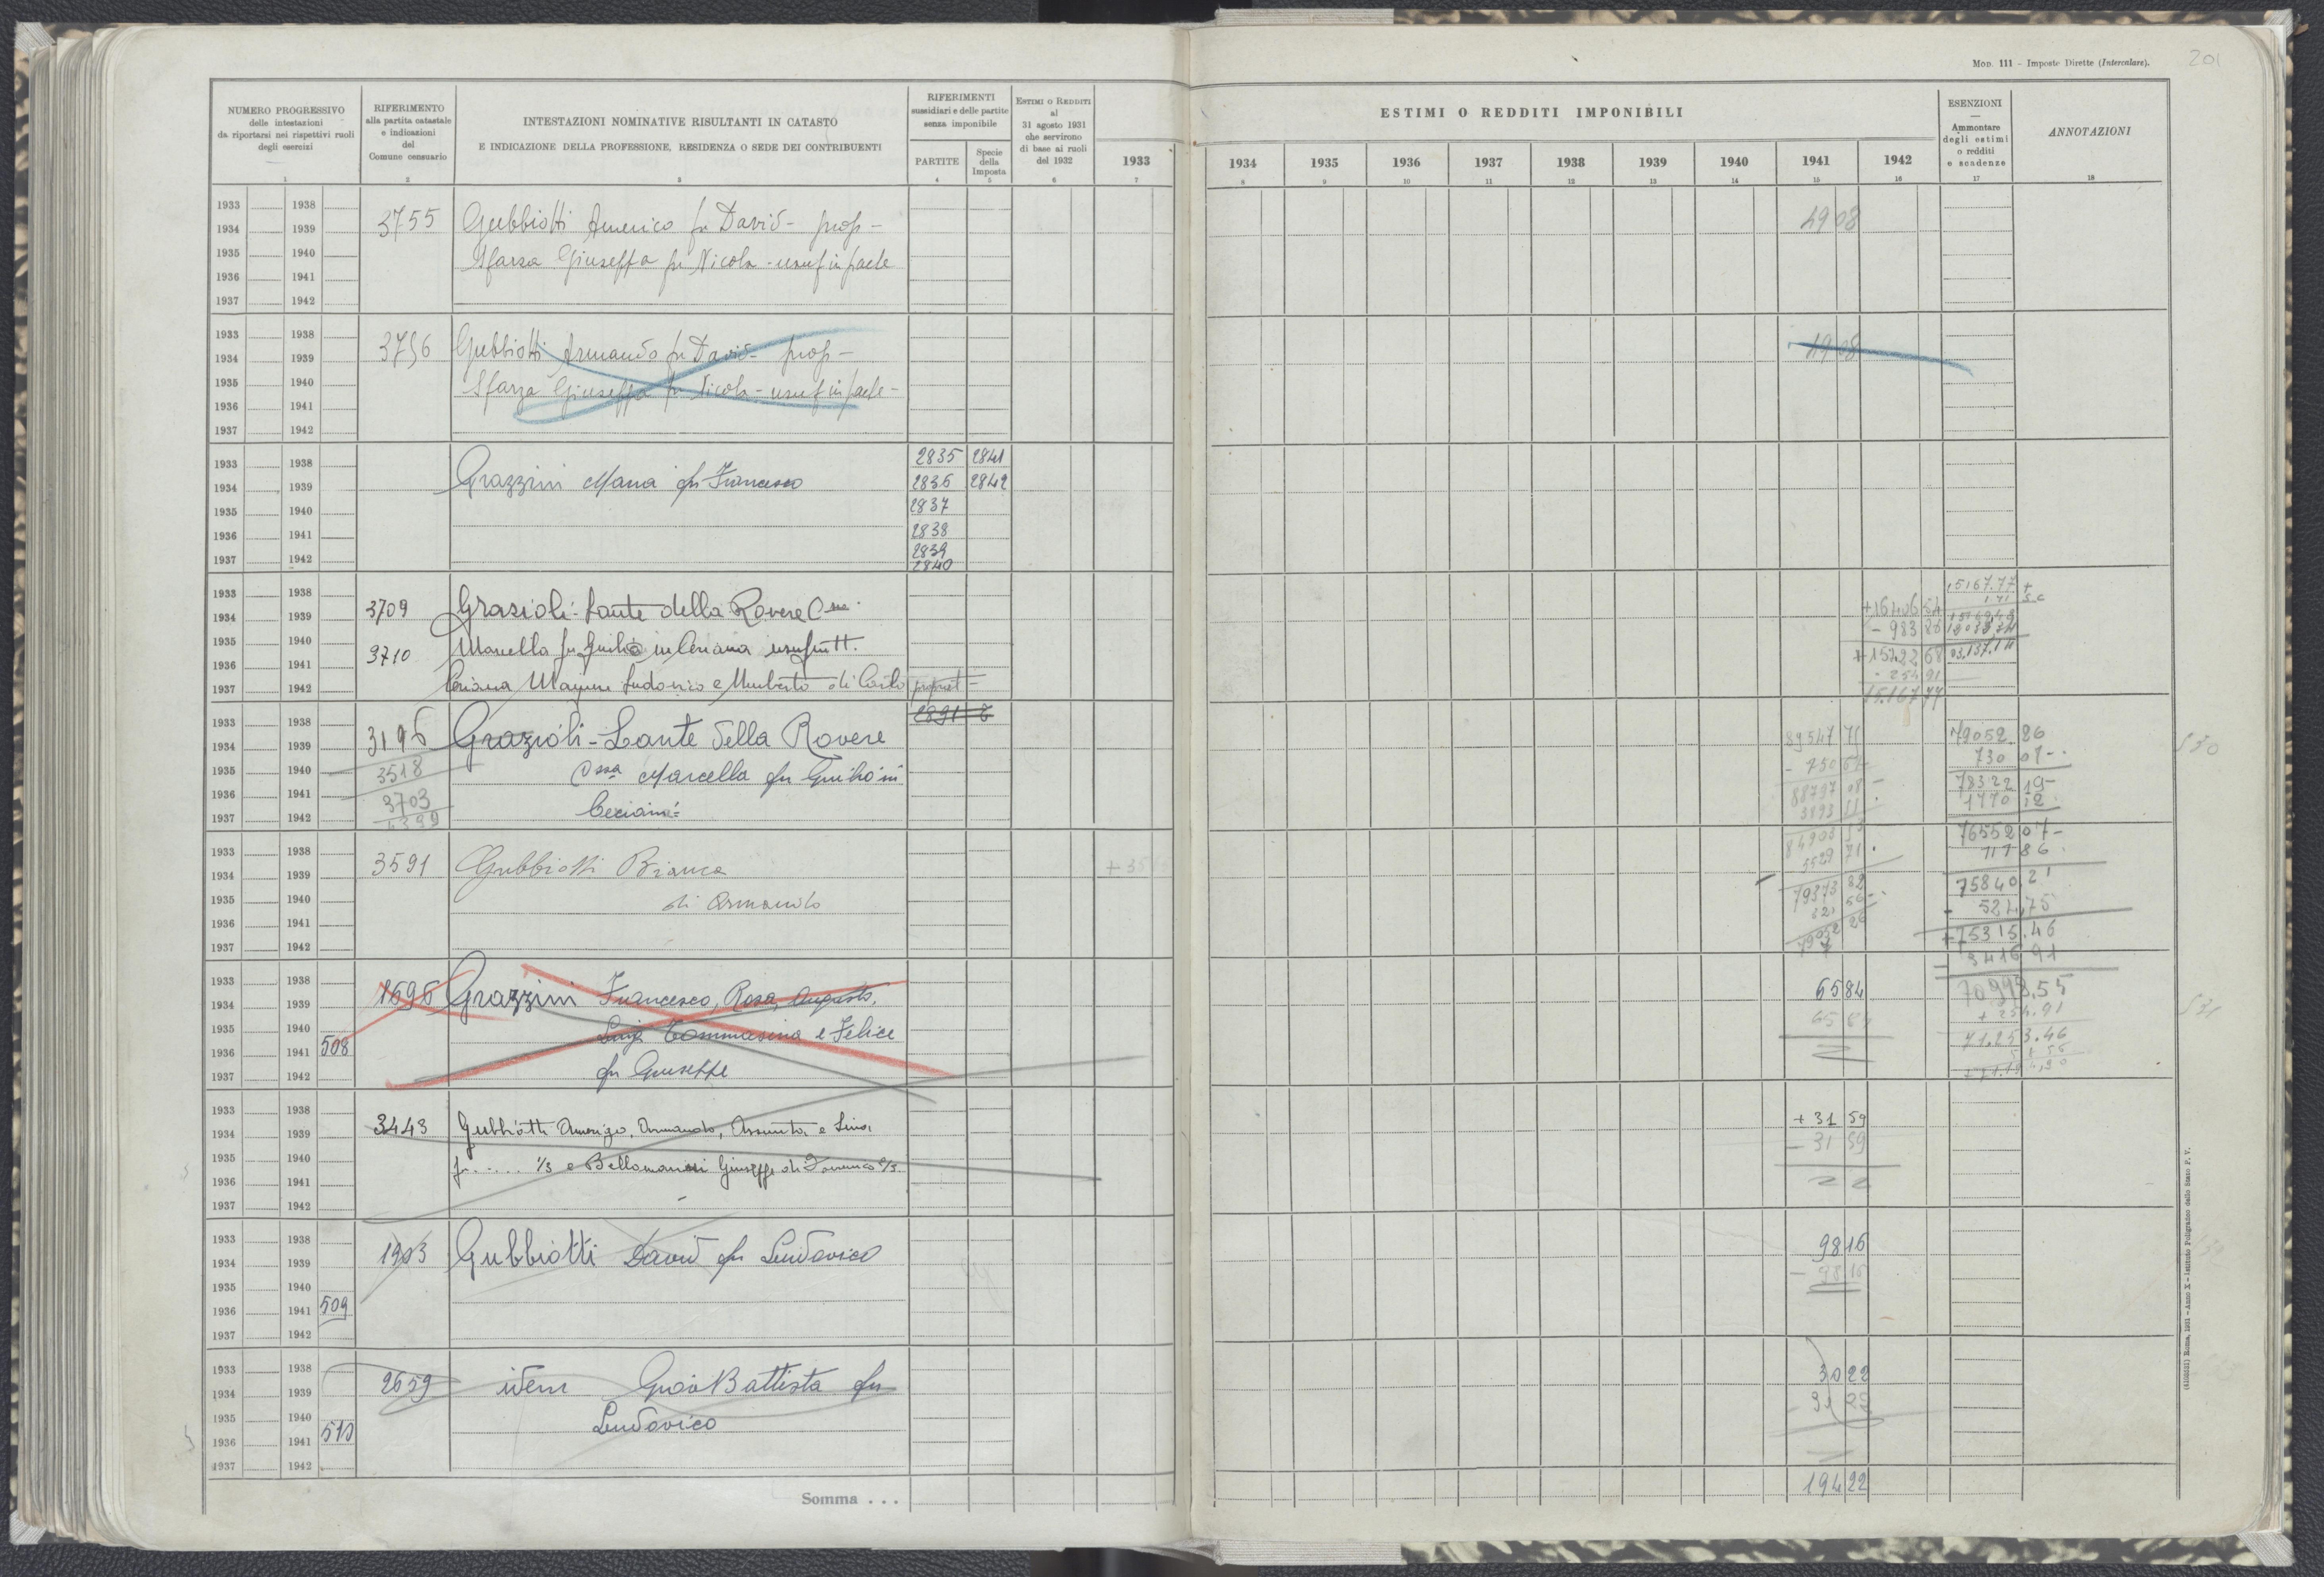 201
MOD. 111 - Imposte Dirette (Intercalare).
NUMERO PROGRESSIVO
delle intestazioni
da riportarsi nei rispettivi ruoli
degli esercizi
1
RIFERIMENTO
alla partita catastale
e indicazioni
del
Comune censuario
2
INTESTAZIONI NOMINATIVE RISULTANTI IN CATASTO
E INDICAZIONE DELLA PROFESSIONE, RESIDENZA O SEDE DEI CONTRIBUENTI
3
RIFERIMENTI
sussidiari e delle partite
senza imponibile
PARTITE
4
Specie
della
Imposta
5
ESTIMI O REDDITI
al
31 agosto 1931
che servirono
di base ai ruoli
del 1932
6
1933
7
ESTIMI O REDDITI IMPONIBILI
1934 1935 1936 1937 1938 1939 1940 1941 1942
8 9 10 11 12 13 14 15 16
ESENZIONI
Ammontare
degli estimi
o redditi
e scadenze
17
ANNOTAZIONI
18
1933 1938
1934 1939 3755 Gubbiotti Americo fu David - prop - 49 08
1935 1940 Sfarza Giuseppa fu Nicola - usuf in parte
1936 1941
1937 1942
1933 1938
1934 1939 3756 Gubbiotti Armando fu David - prop - 49 08
1935 1940 Sfarza Giuseppa fu Nicola - usuf in parte -
1936 1941
1937 1942
1933 1938 2835 2841
1934 1939 Grazzini Maria fu Francesco 2836 2842
1935 1940 2837
1936 1941 2838
1937 1942 2839
2840
1933 1938 15167.77 +
1934 1939 3709 Grazioli-Lante della Rovere C.ssa +16206 54
1935 1940 Marcella fu Giulio in Ceriana usufrutt. - 983 86
1936 1941 3710 +15222 68
1937 1942 Ceriana Mayneri Ludovico e Umberto di Carlo propriet - - 254 91
15.167 77
1933 1938 2891
1934 1939 3196 Grazioli-Lante della Rovere 89547 75 79052 26
1935 1940 3518 C.ssa Marcella fu Giulio in 750 67 730 07
1936 1941 3703 88797 08 78322 19
1937 1942 Ceriana 3893 55 1770 12
1933 1938 84903 53 76552 07
1934 1939 3591 Gubbiotti Bianca 5529 71 711 86
1935 1940 di Armando 79373 82 75840.21
1936 1941 321 56 - 524.75
1937 1942 79052 26 +75315.46
1933 1938 3416 91
1934 1939 1696 Grazzini Francesco, Rosa, Augusto, 65 84
1935 1940 Luigi Tommasina e Felice 65 84 + 254.91
1936 1941 508 71.253.46
1937 1942 fu Giuseppe
1933 1938
1934 1939 3443 Gubbiotti Amerigo, Armando, Assunta e Lina + 31 59
1935 1940 fu ...... 1/3 e Bellomarini Giuseppe di Domenico 2/3 - 31 59
1936 1941
1937 1942
1933 1938
1934 1939 1903 Gubbiotti David fu Ludovico 98 16
1935 1940 - 98 16
1936 1941 509
1937 1942
1933 1938
1934 1939 2659 idem Gio Battista fu 30 22
1935 1940 Ludovico
1936 1941 510
1937 1942
Somma . . . 194 22
Roma, 1931 - Anno X - Istituto Poligrafico dello Stato P. V.